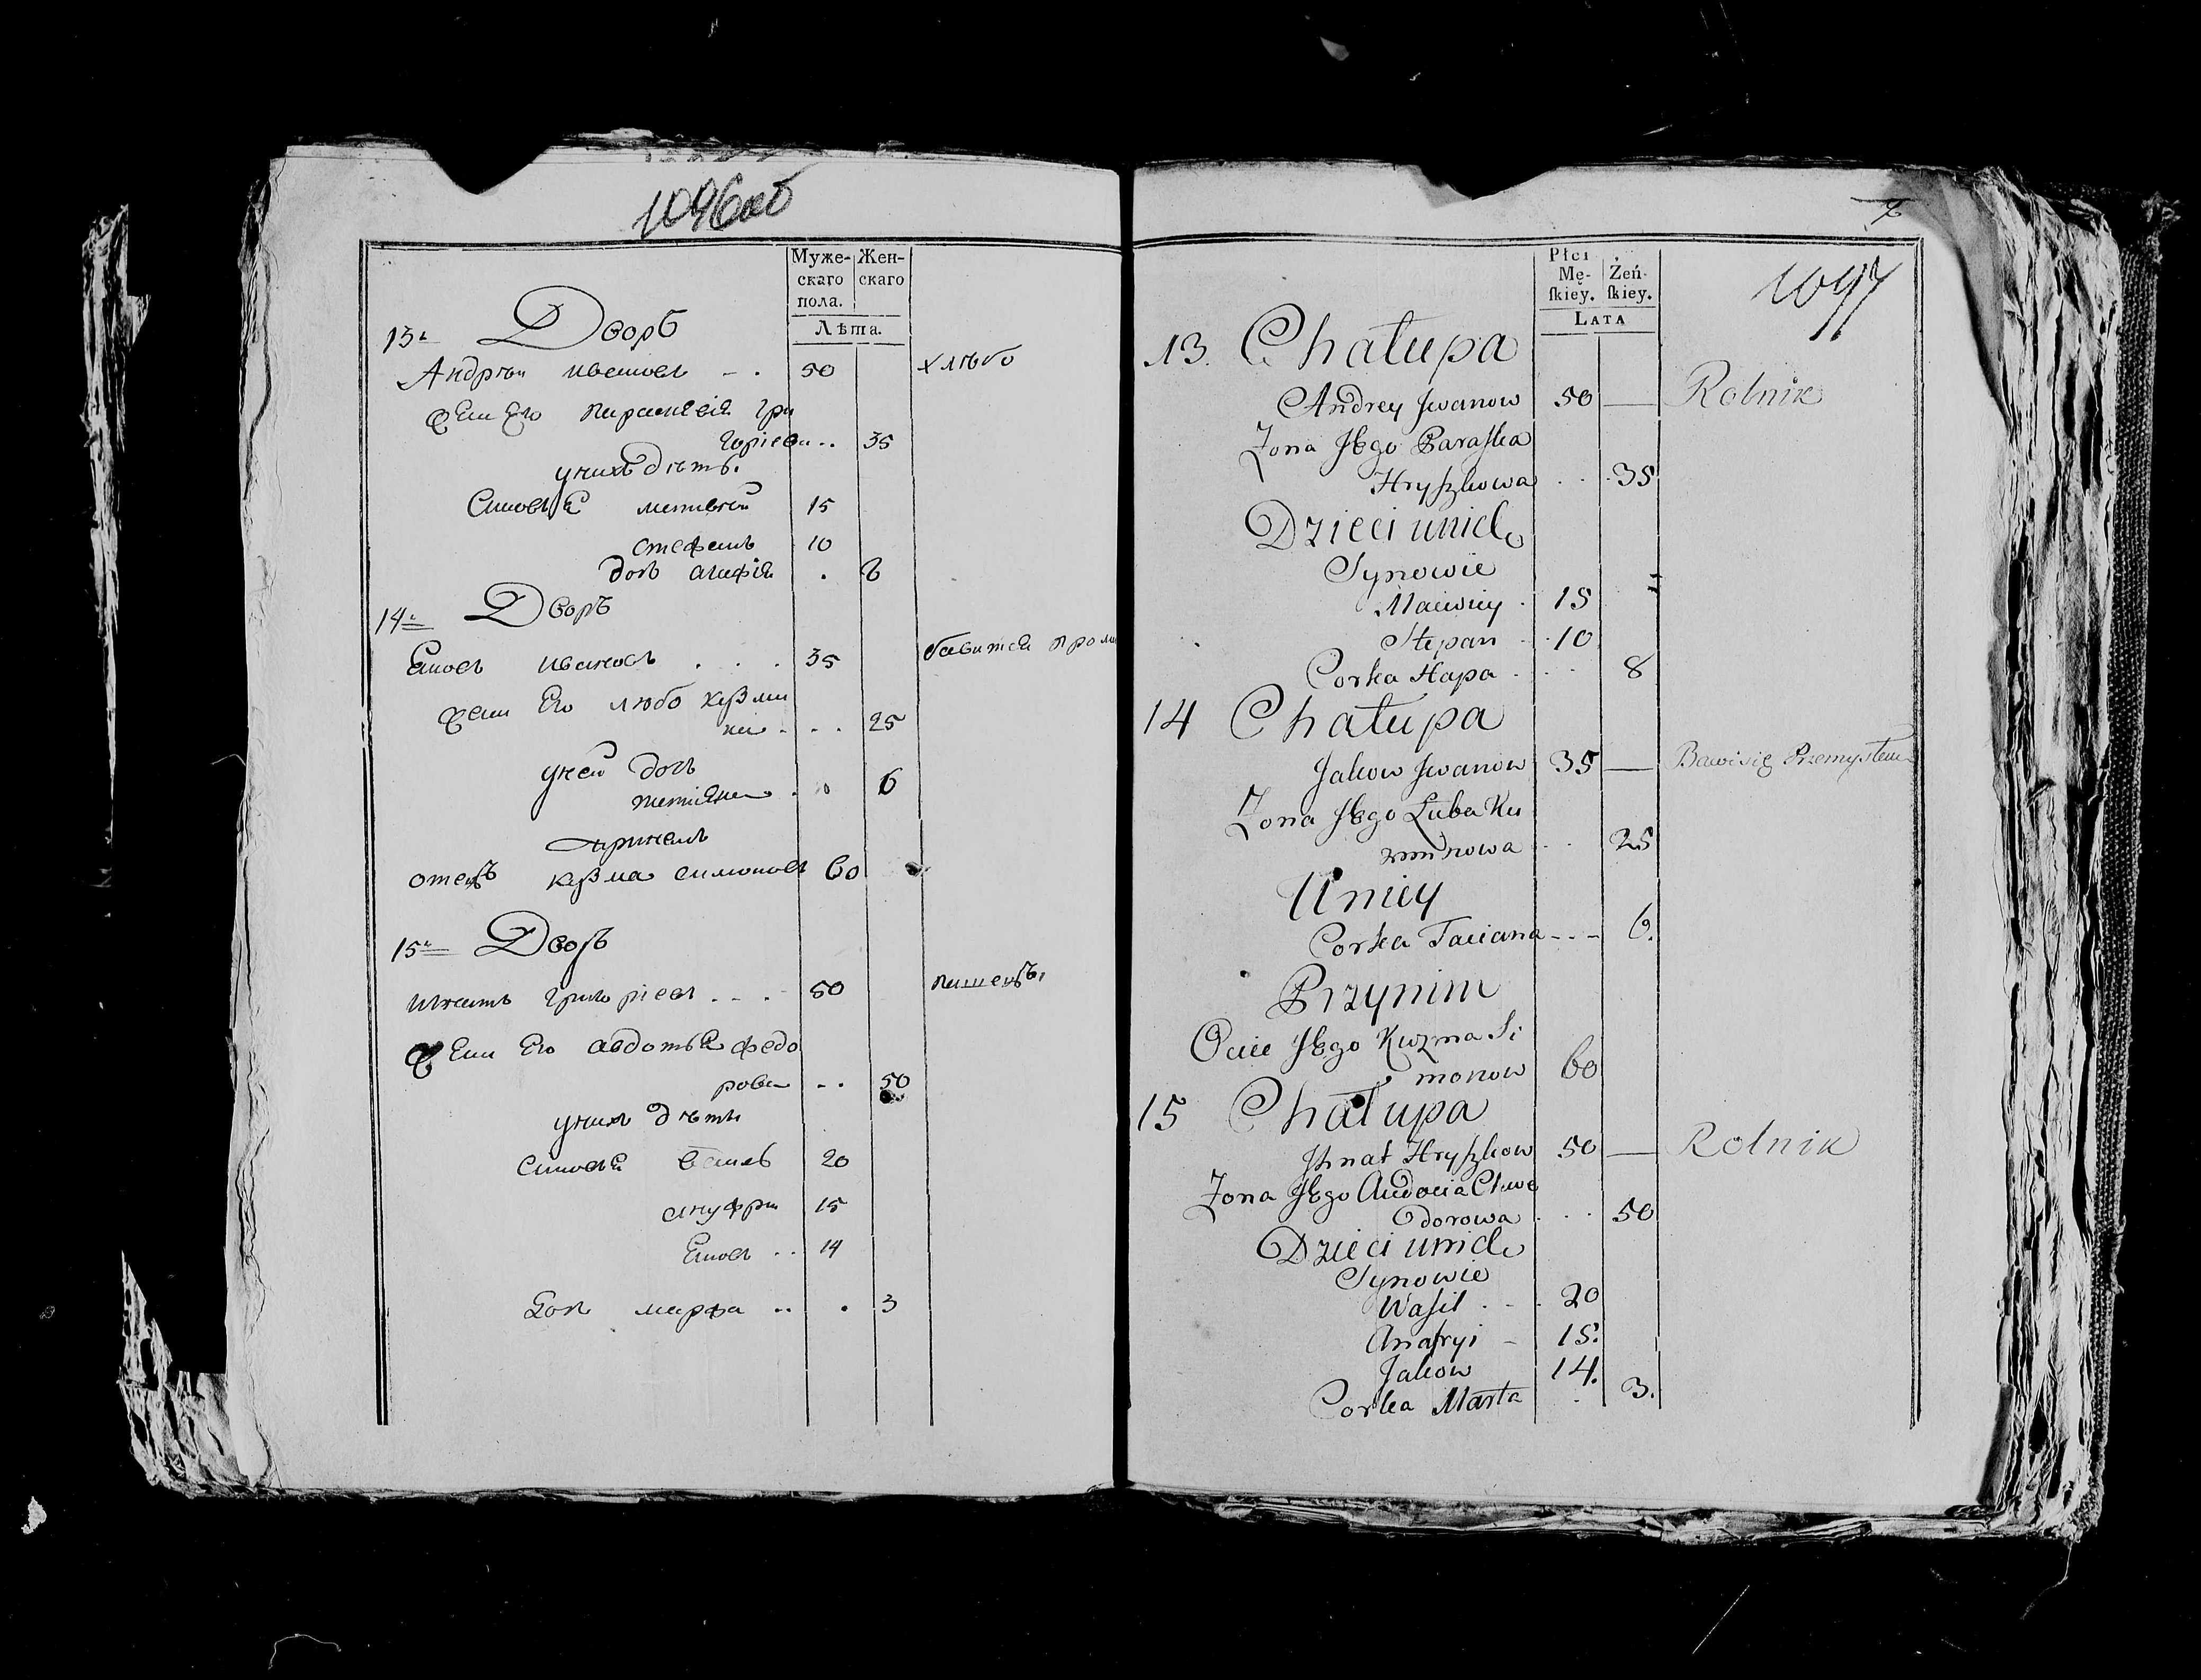 1096об
Муже-
скаго
пола.
Жен-
скаго
Лѣта.
13. Дворъ
Андрѣи Ивановъ - . 50 хлѣбо
жена Его Параскевія Гри
горіева .. 35
у нихъ дѣти.
Синовья Матвѣй 15
Стефанъ 10
дочь Агафія . 8
14. Дворъ
Яковъ Ивановъ . . . 35 бавитса про
жена Его любо Кузми
на . . . 25
у ней дочъ
татіяна . . 6
принемъ
отецъ кузма симоновъ 60
15. Дворъ
Игнатъ Григоріевъ . - . 50 пашецъ
жена Его Авдотья Федо
рова - . 50
у нихъ дѣти
синовья Василь 20
Ануфри 15
Яковъ .. 14
Дочъ марфа .. . 3
7
1097
Płci
Mę-
ſkiey.
Żeń-
ſkiey.
LATA
13. Chałupa
Andrey Jwanow 50 — Rolnik
Zona Jego Paraſka
Hryſzkowa . . . 35
Dzieci unich
Synowie
Maciwiey . 15
Stepan . . 10
Corka Hapa . . . 8
14 Chałupa
Jakow Jwanow 35 — Bawi się Przemysłem
Zona Jego Luba Ku
zminowa . . 25
Uniey
Corka Taciana - - - 6.
Przynim
Ociec Jego Kuzma Si
monow 60
15 Chałupa
Jhnat Hryſzkow 50 — Rolnik
Zona Jego Audocia Chwe
dorowa . . . 50
Dzieci unich
Synowie
Waſil . - . 20
Anafryi - 15.
Jakow 14.
Corka Marta . 3.